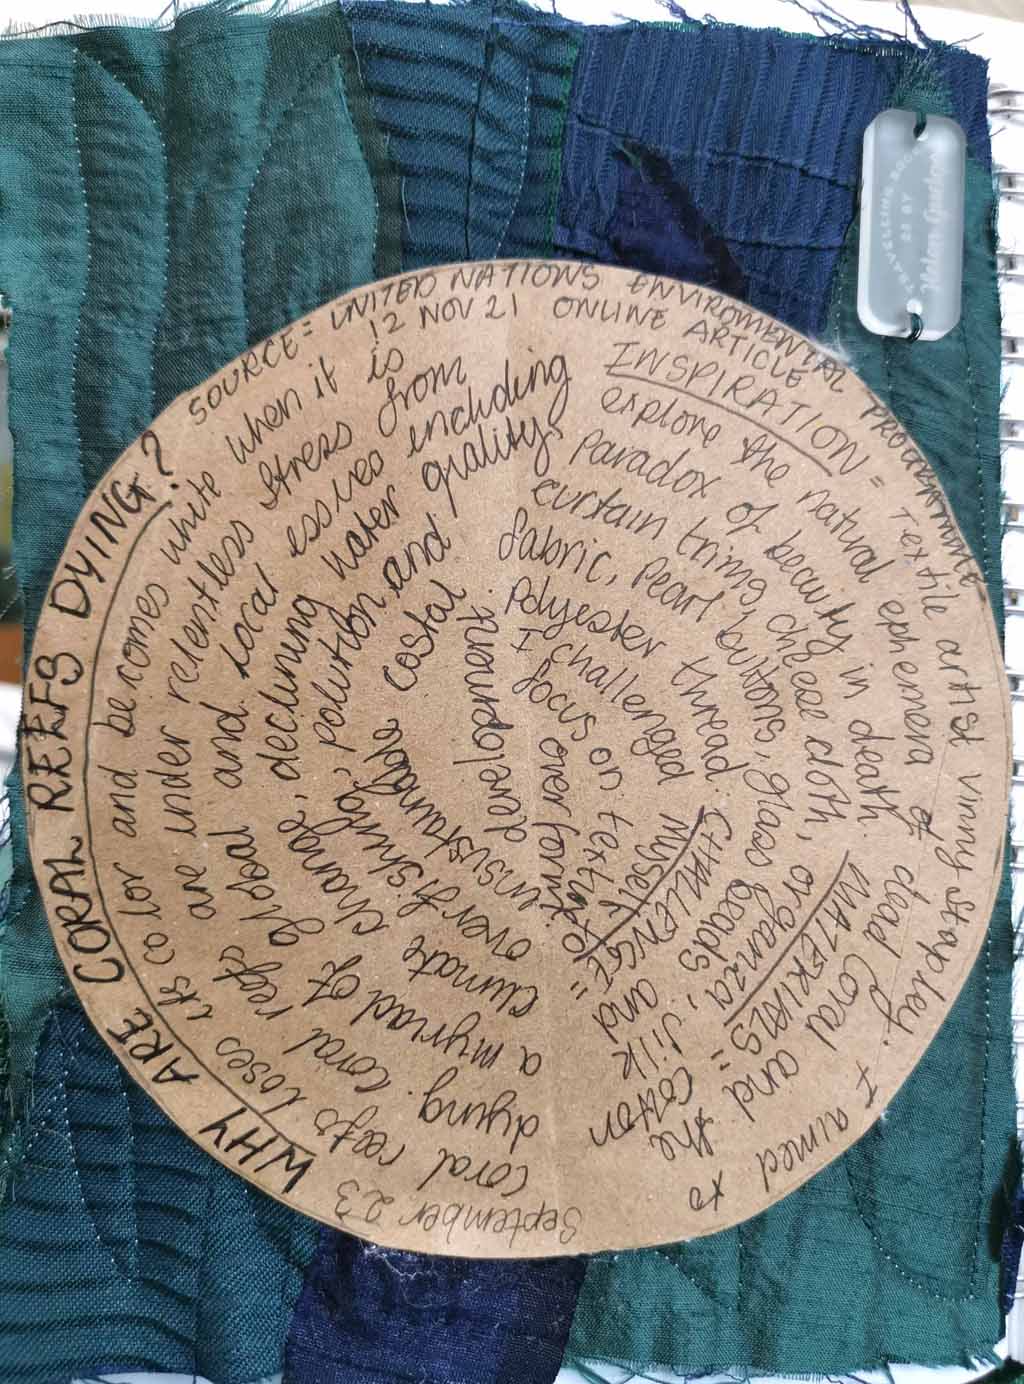 SOURCE = UNITED NATIONS ENVIROMENTAL PROGRAMME
12 NOV 21 ONLINE ARTICLE
WHY ARE CORAL REEFS DYING?
coral reefs loses its color and becomes white when it is
dying. Coral reefs are under relentless stress from
a myriad of global and local essives including
climate change, declining water quality,
overfishing, polution and
unsustainable costal
development
INSPIRATION = Textile artist Vinny Stapley. I aimed to
explore the natural ephemera of dead coral and the
paradox of beauty in death. MATERIALS = cotton
curtain triming, cheese cloth, organza, silk and
fabric, pearl buttons, glass beads
polyester thread CHALLENGE =
I challenged myself to
focus on texture
over form
September 23
BY
Helen